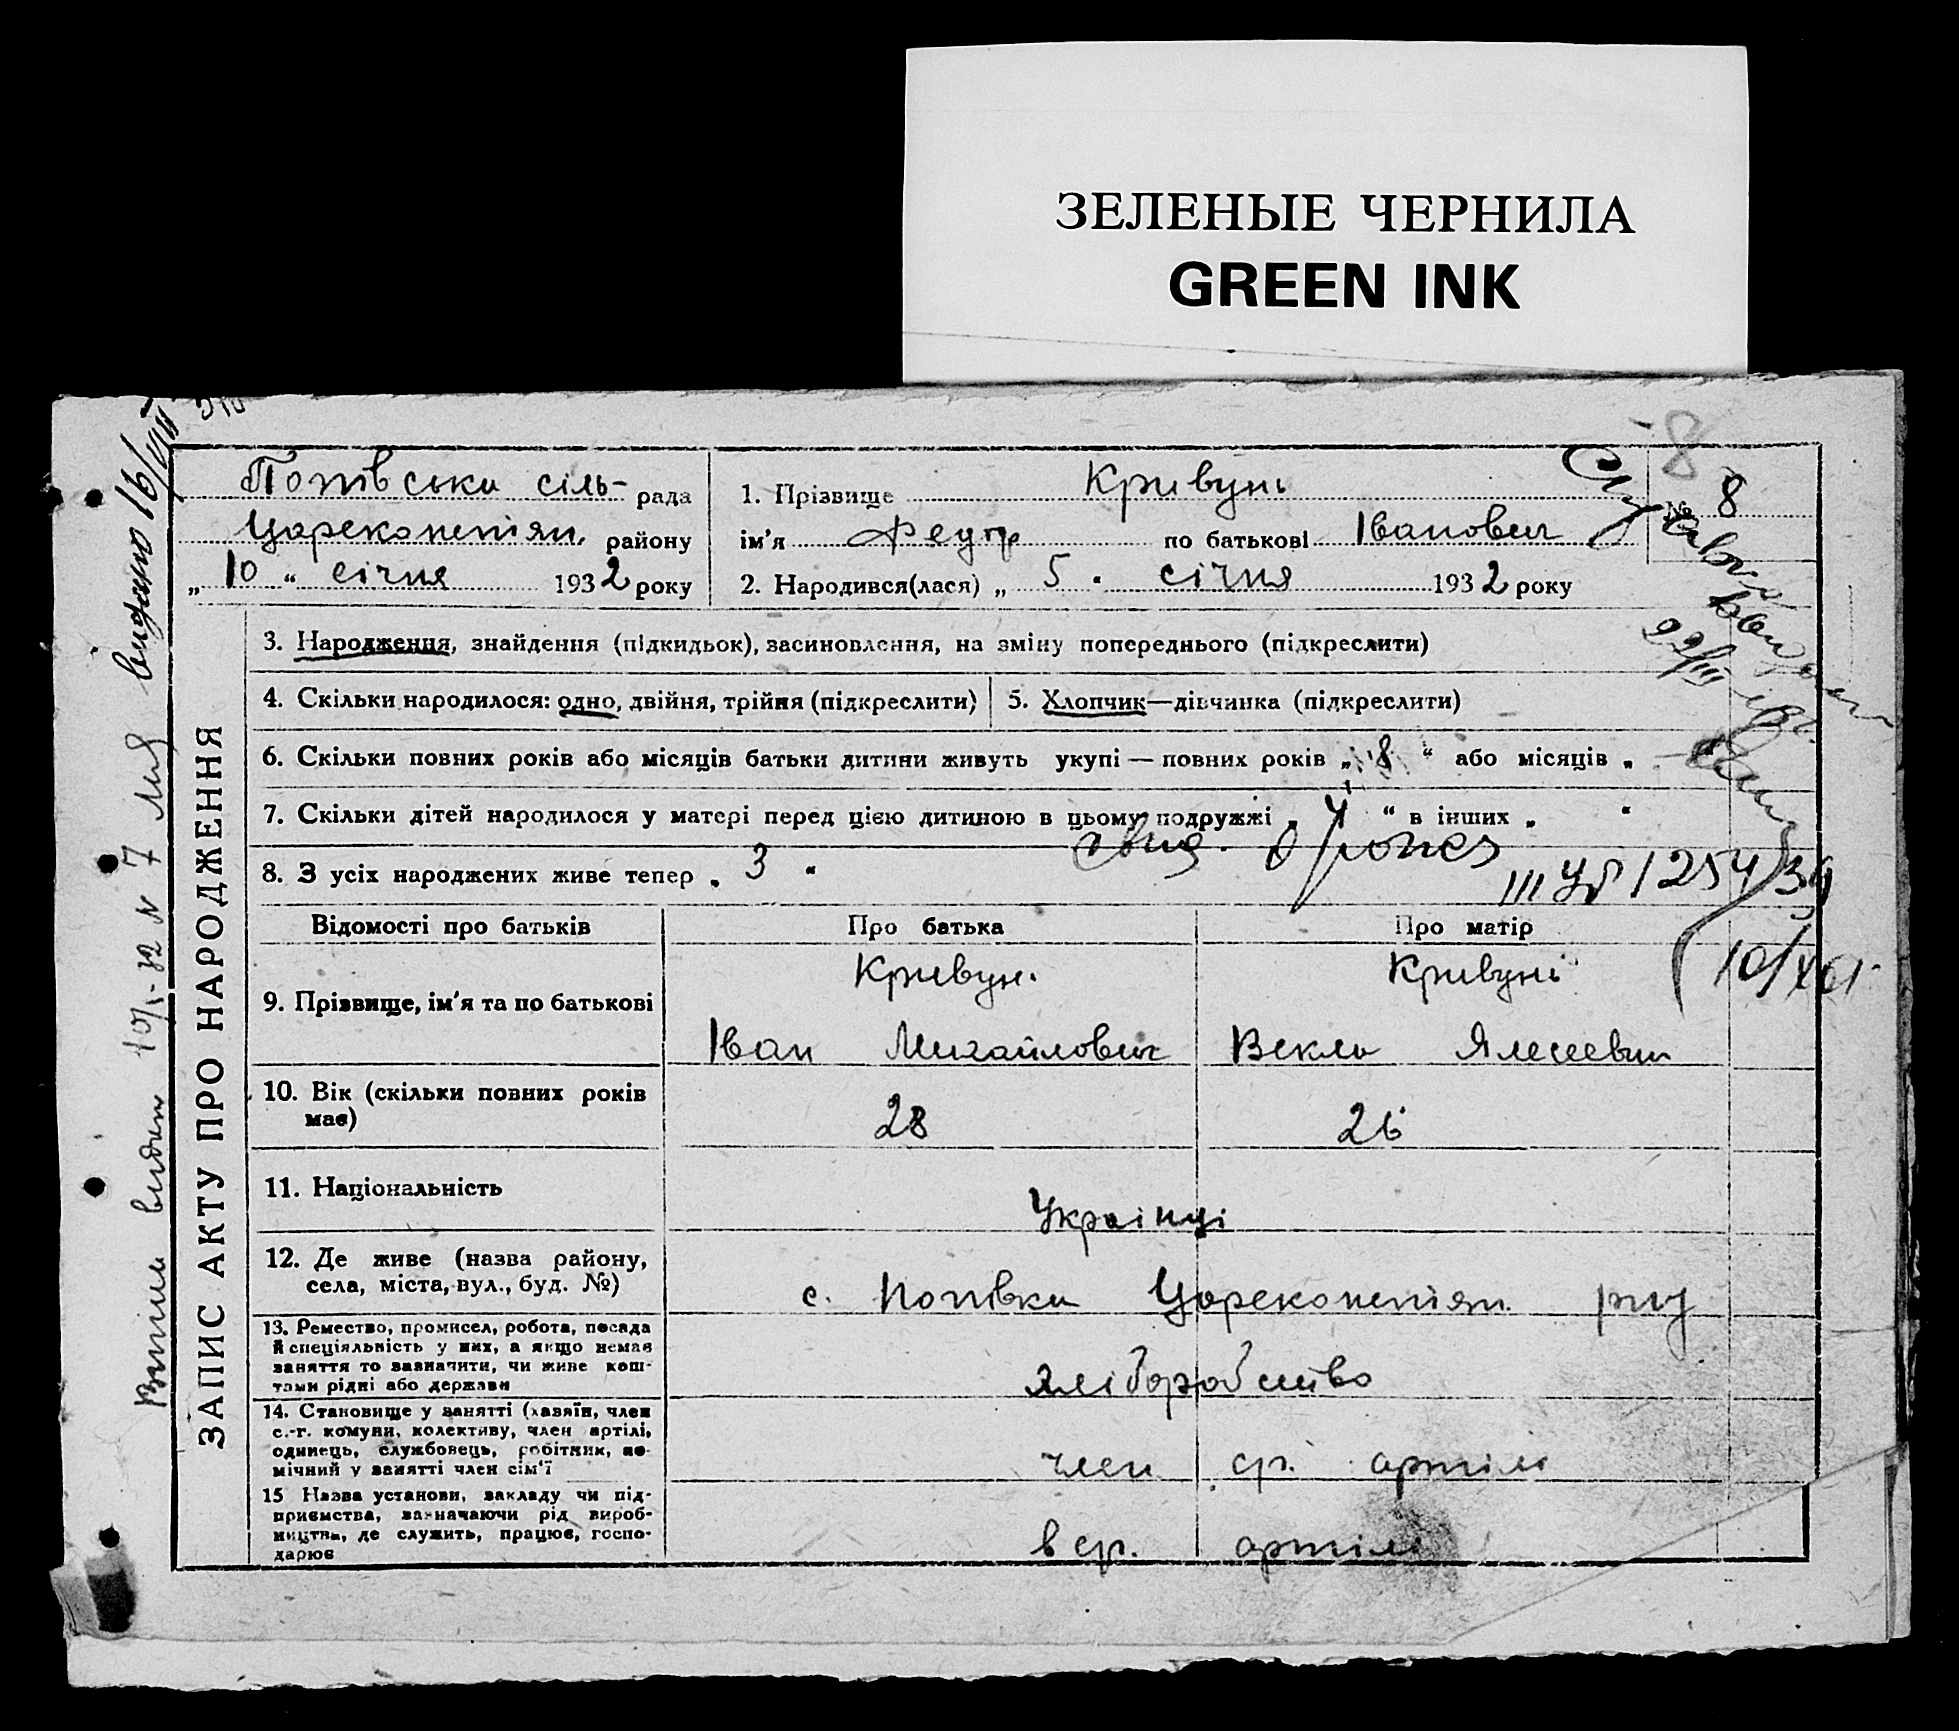 ЗЕЛЕНЫЕ ЧЕРНИЛА
GREEN INK
8
Попівська сіль- рада
Цареконстян. району
„ 10 “ січня 1932 року
1. Прізвище Кривунь
№ 8
ім'я Федір по батькові Іванович
2. Народився(лася) „ 5 “ січня 1932 року
ЗАПИС АКТУ ПРО НАРОДЖЕННЯ
3. Народження, знайдення (підкидьок), засиновлення, на зміну попереднього (підкреслити)
4. Скільки народилося: одно, двійня, трійня (підкреслити)
5. Хлопчик—дівчинка (підкреслити)
6. Скільки повних років або місяців батьки дитини живуть укупі — повних років „ 8 “ або місяців „
7. Скільки дітей народилося у матері перед цією дитиною в цьому подружжі „ 4 “ в інших „ “
8. З усіх народжених живе тепер „ 3 “
III УР 1254/34
Відомості про батьків
Про батька
Про матір
9. Прізвище, ім'я та по батькові
Кривун.
Іван Михайлович
Кривунь
Векла
10. Вік (скільки повних років має)
28
26
11. Національність
Українці
12. Де живе (назва району, села, міста, вул., буд. №)
с. Попівка Цареконстян. р-ну
13. Ремество, промисел, робота, посада й спеціяльність у них, а якщо немає заняття то зазначити, чи живе коштами рідні або держави
хліборобство
14. Становище у занятті (хазяїн, член с.-г. комуни, колективу, член артілі, одинець, службовець, робітник, помічний у занятті член сім'ї
член ср. артілі
15 Назва установи, закладу чи підприємства, зазначаючи рід виробництва, де служить, працює, господарює
в ср. артілі
Витяг видан 10/I-32 N 7
видано 16/VIII
22/III